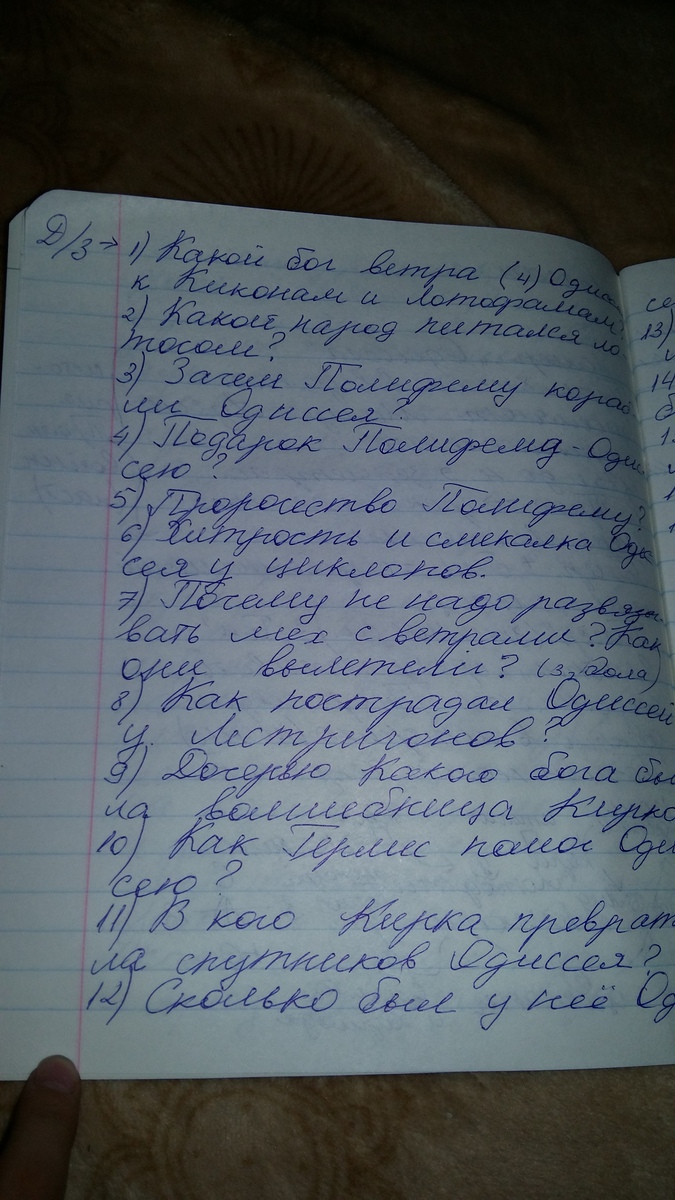 Д/З→ 1) Какой бог ветра (4) Одисс
к Киконам и Лотофагам?
2) Какой народ питался ло-
тосом?
3) Зачем Полифему кораб-
ли Одиссея?
4) Подарок Полифема - Одис
сею?
5) Пророчество Полифему?
6) Хитрость и смекалка Одис
сея у циклопов.
7) Почему не надо развязы-
вать мех с ветрами? Как
они вылетели? (3. Эола)
8) Как пострадал Одиссей
у Лестригонов?
9) Дочерью какого бога бы
ла волшебница Кирка
10) Как Гермес помог Оди
сею?
11) В кого Кирка преврат
ла спутников Одиссея?
12) Сколько был у неё Од
се
13)
14